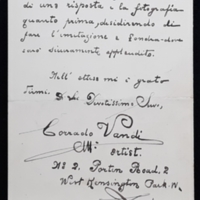 di una risposta e la fotografia
quanto prima, desiderando di
fare l'imitazione a Londra dove
sarò sicuramente, applaudito.
Nell'attesa mi è grato
firmi. Di Lei Devotissimo Suo,
Corrado Vandi
artist.
2. Portin Road. 2
West Kensington Park. W.